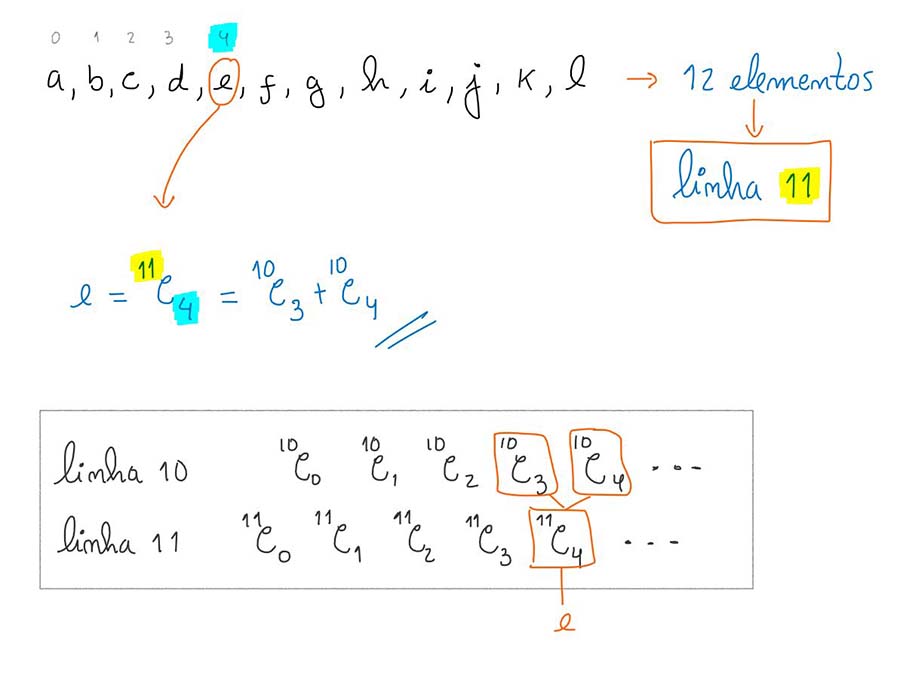 0 1 2 3 4
a, b, c, d, e, f, g, h, i, j, k, l → 12 elementos
linha 11
e = ¹¹C₄ = ¹⁰C₃ + ¹⁰C₄
linha 10 ¹⁰C₀ ¹⁰C₁ ¹⁰C₂ ¹⁰C₃ ¹⁰C₄ ...
linha 11 ¹¹C₀ ¹¹C₁ ¹¹C₂ ¹¹C₃ ¹¹C₄ ...
e